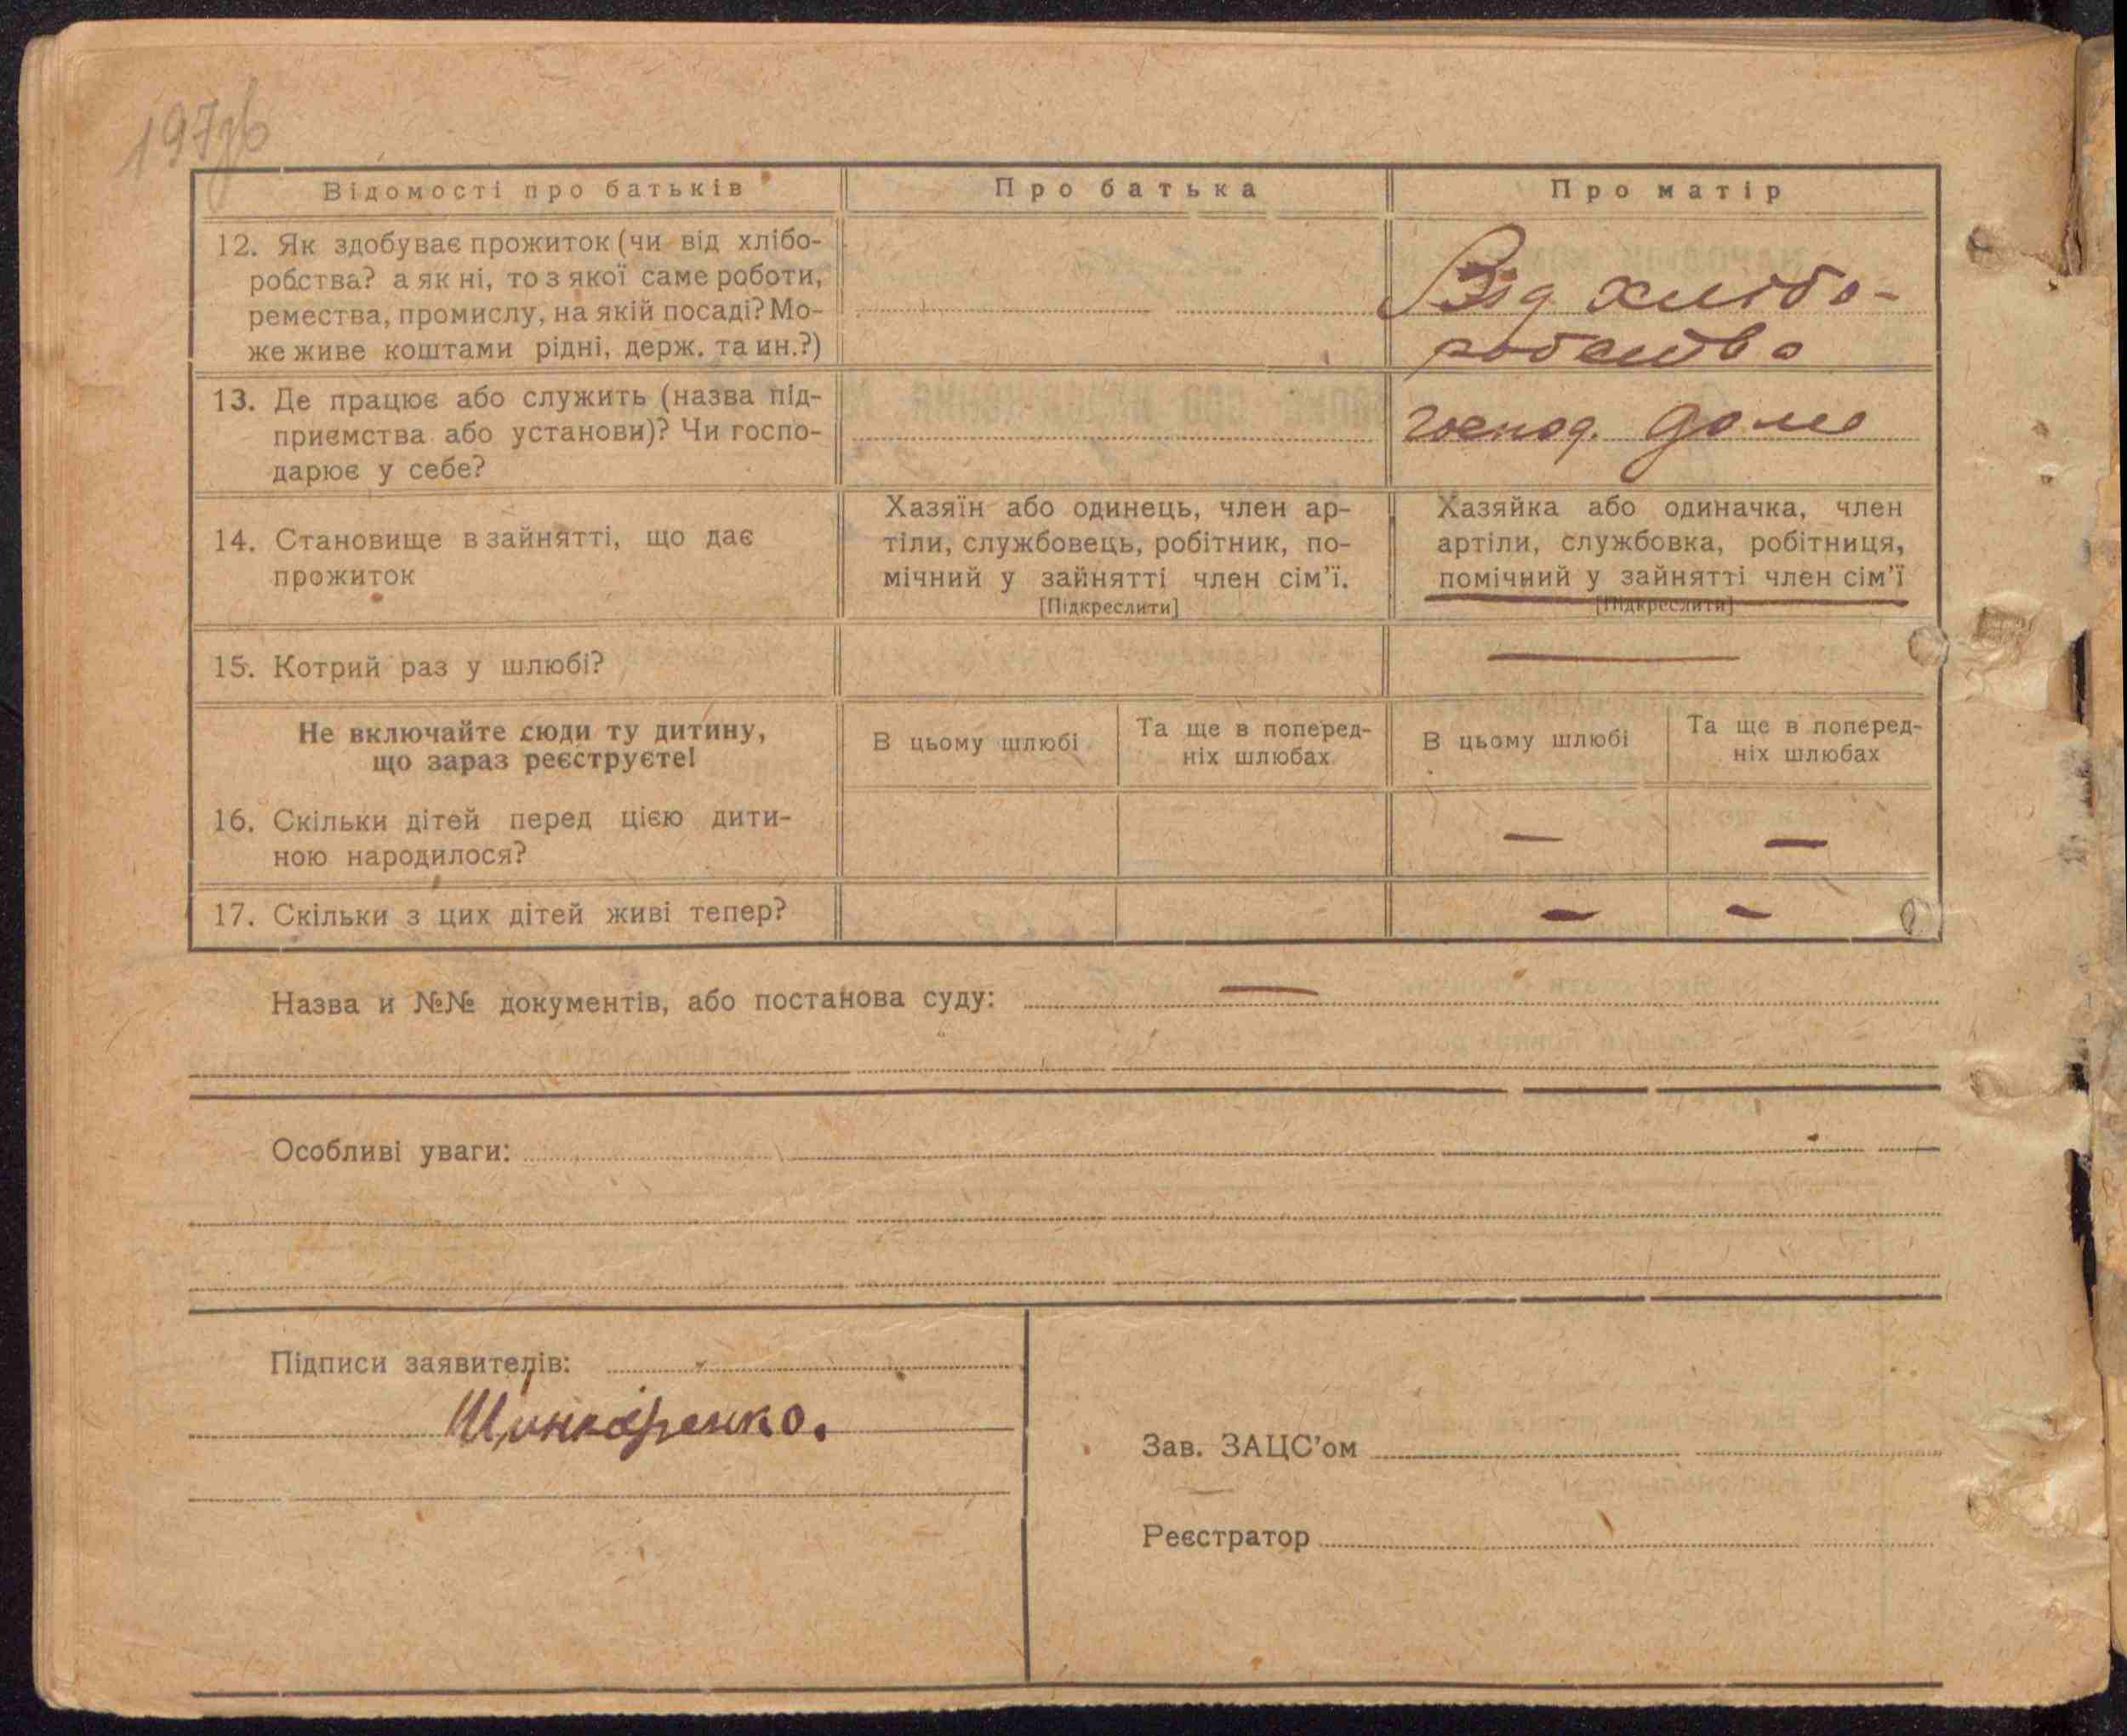 197зв
Відомості про батьків
Про батька
Про матір
12. Як здобуває прожиток (чи від хлібо-
робства? а як ні, то з якої саме роботи,
ремества, промислу, на якій посаді? Мо-
же живе коштами рідні, держ. та ин.?)
Від хлібо-
робства
13. Де працює або служить (назва під-
приємства або установи)? Чи госпо-
дарює у себе?
господ. дома
14. Становище в зайнятті, що дає
прожиток
Хазяїн або одинець, член ар-
тіли, службовець, робітник, по-
мічний у зайнятті член сім'ї.
[Підкреслити]
Хазяйка або одиначка, член
артіли, службовка, робітниця,
помічний у зайнятті член сім'ї
[Підкреслити]
15. Котрий раз у шлюбі?
—
Не включайте сюди ту дитину,
що зараз реєструєте!
В цьому шлюбі
Та ще в поперед-
ніх шлюбах
В цьому шлюбі
Та ще в поперед-
ніх шлюбах
16. Скільки дітей перед цією дити-
ною народилося?
— —
17. Скільки з цих дітей живі тепер?
— —
Назва и №№ документів, або постанова суду: —
Особливі уваги:
Підписи заявителів:
Шинкаренко.
Зав. ЗАЦС'ом
Реєстратор